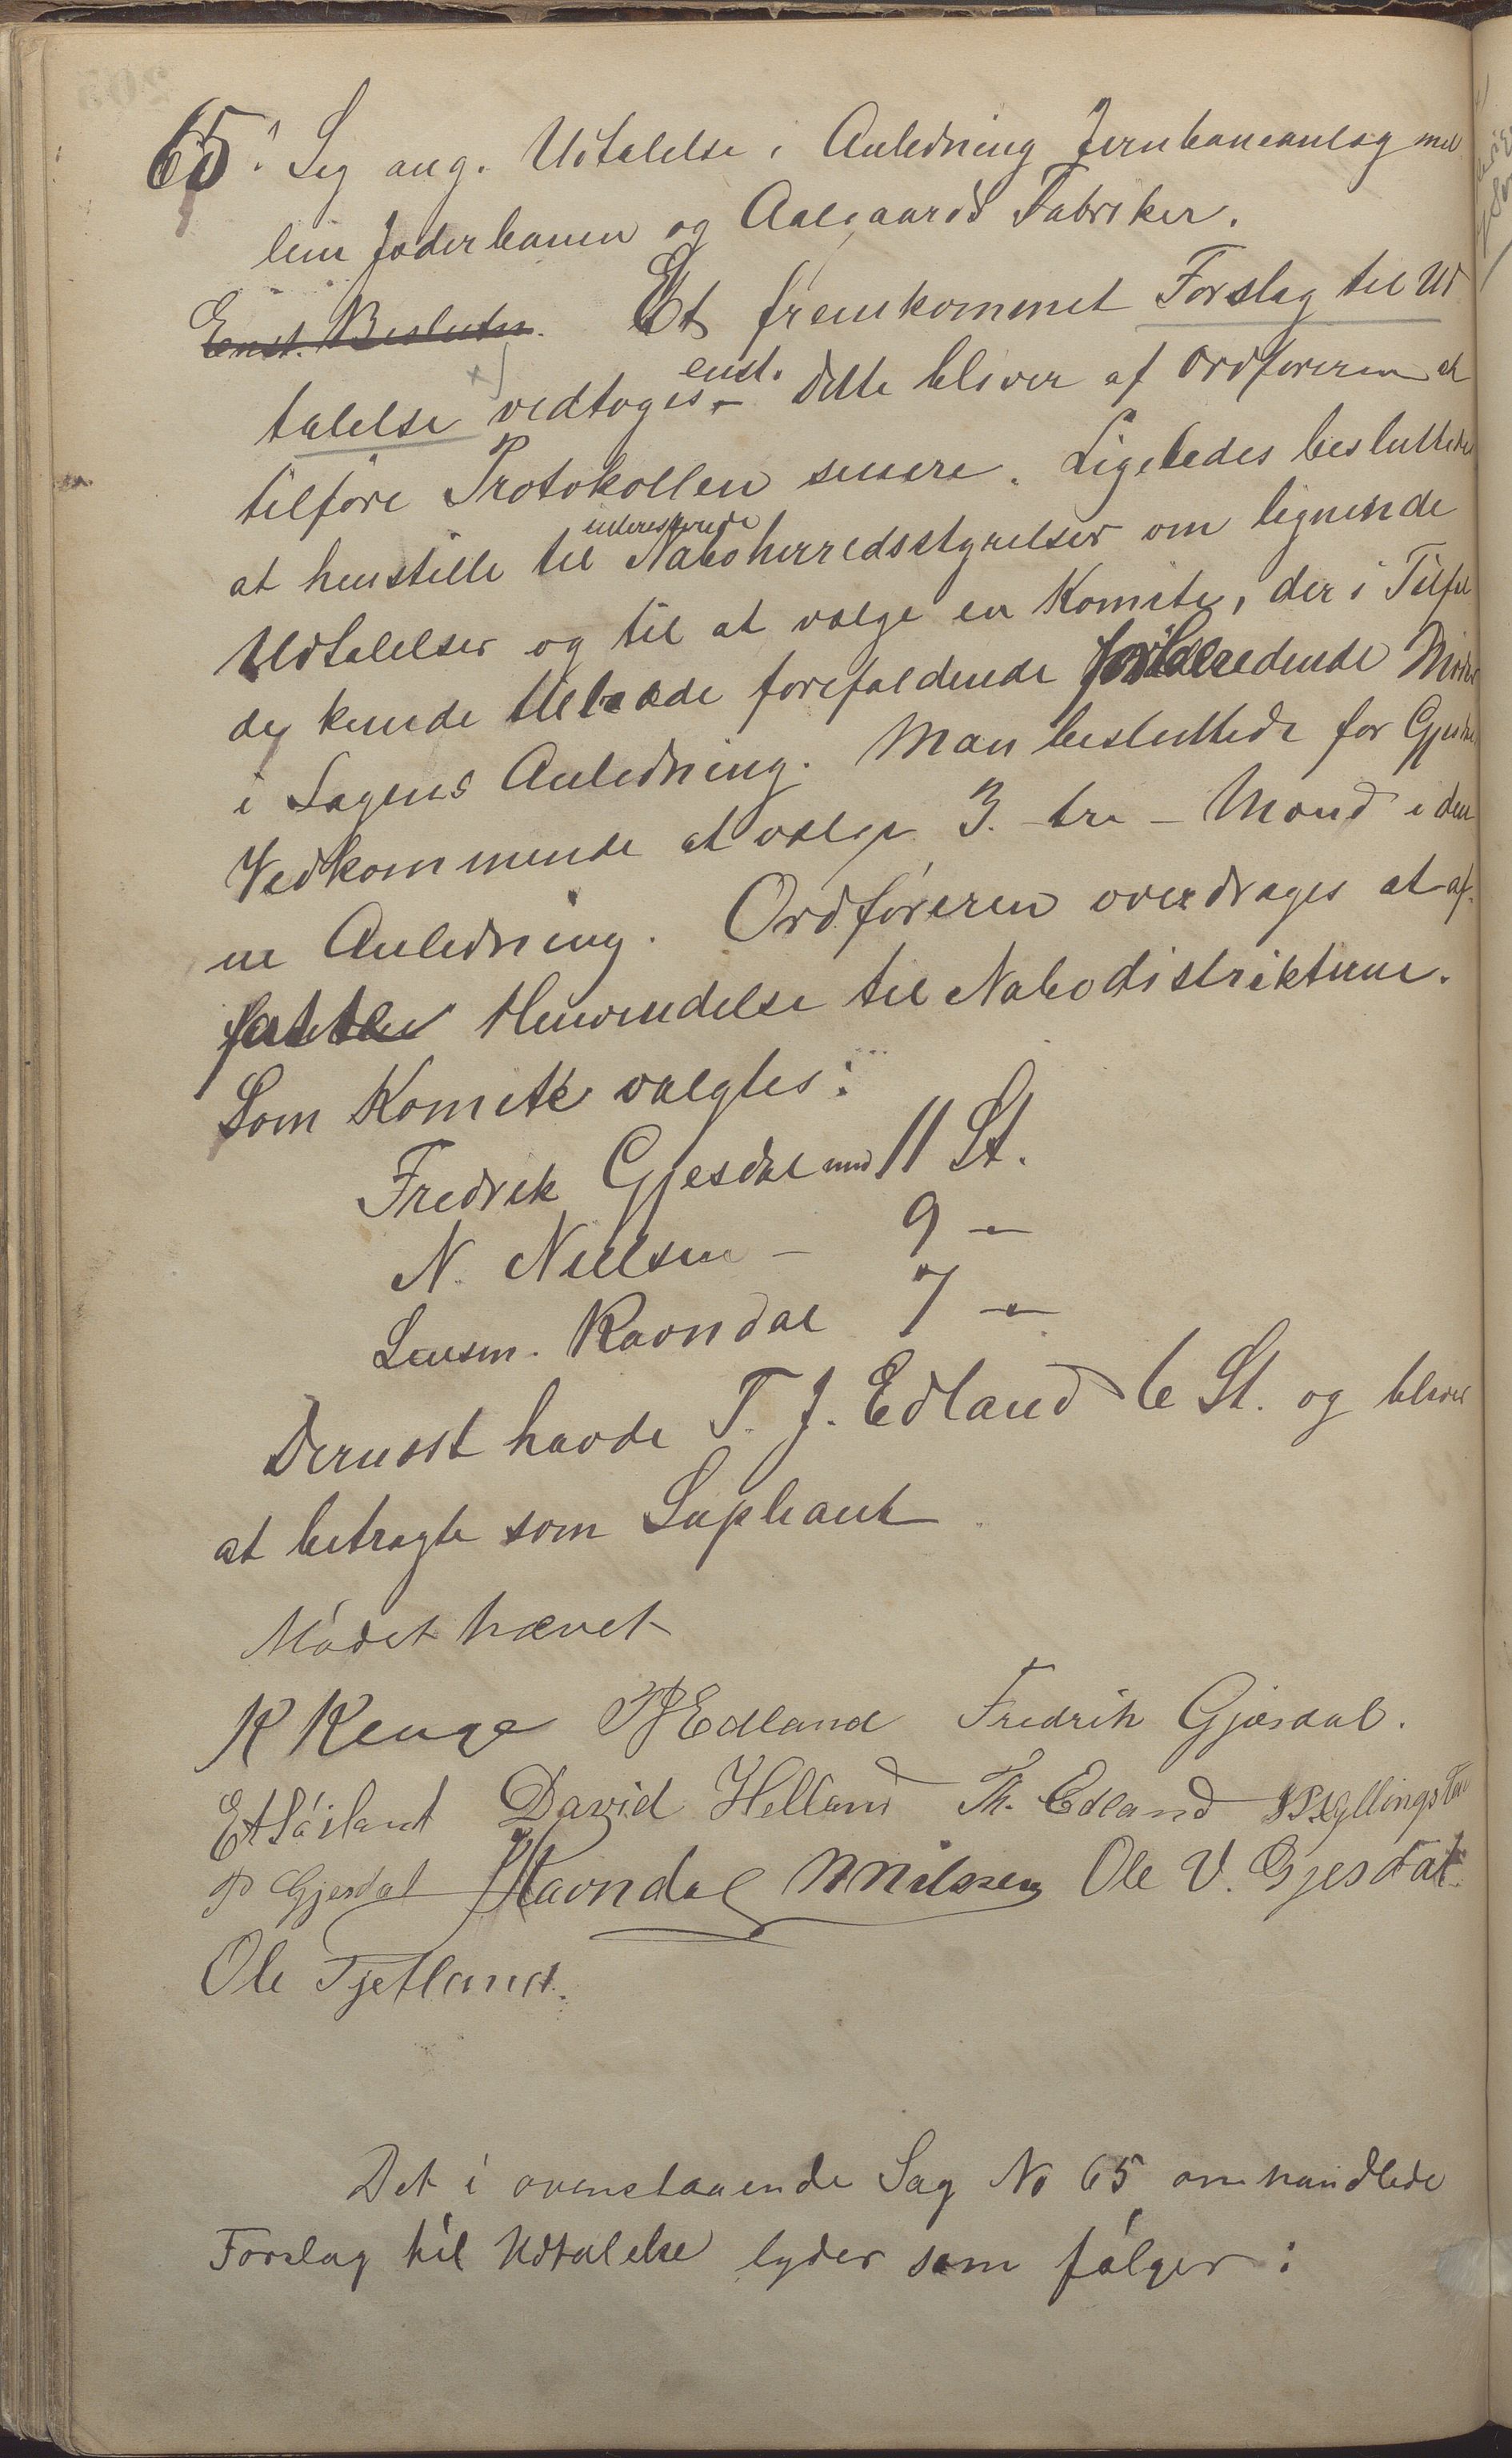 65. Sag ang. Udtalelse i Anledning Jernbaneanlæg mel
lem Jæderbanen og Aalgaards Fabriker.
Enst. Beslutn. Et fremkommet Forslag til Ud
talelse vedtoges enst. Dette bliver af Ordføreren at
tilføre Protokollen senere. Ligeledes besluttedes
at henstille til interesserede Naboherredsstyrelser om lignende
Udtalelser og til at vælge en Komite, der i Tilfæl
de kunde tiltræde forefaldende forberedende Møder
i Sagens Anledning. Man besluttede for Gjesdal
Vedkommende at vælge 3 - tre - Mænd i den
ne Anledning. Ordføreren overdrages at af-
fatte Henvendelse til Nabodistrikterne.
Som Komité valgtes:
Fredrik Gjesdal med 11 St.
N. Nielsen - 9 -
Lensm. Ravndal 7 -
Dernæst havde T. J. Edland 6 St. og bliver
at betragte som Supleant
Mødet hævet
K Kenge TJEdland Fredrik Gjesdal.
David Helland Th. Edland
P Gjesdal Ravndal N Nilssen Ole V. Gjesdal
Ole Tjetland.
Det i ovenstaaende Sag No 65 omhandlede
Forslag til Udtalelse lyder som følger: